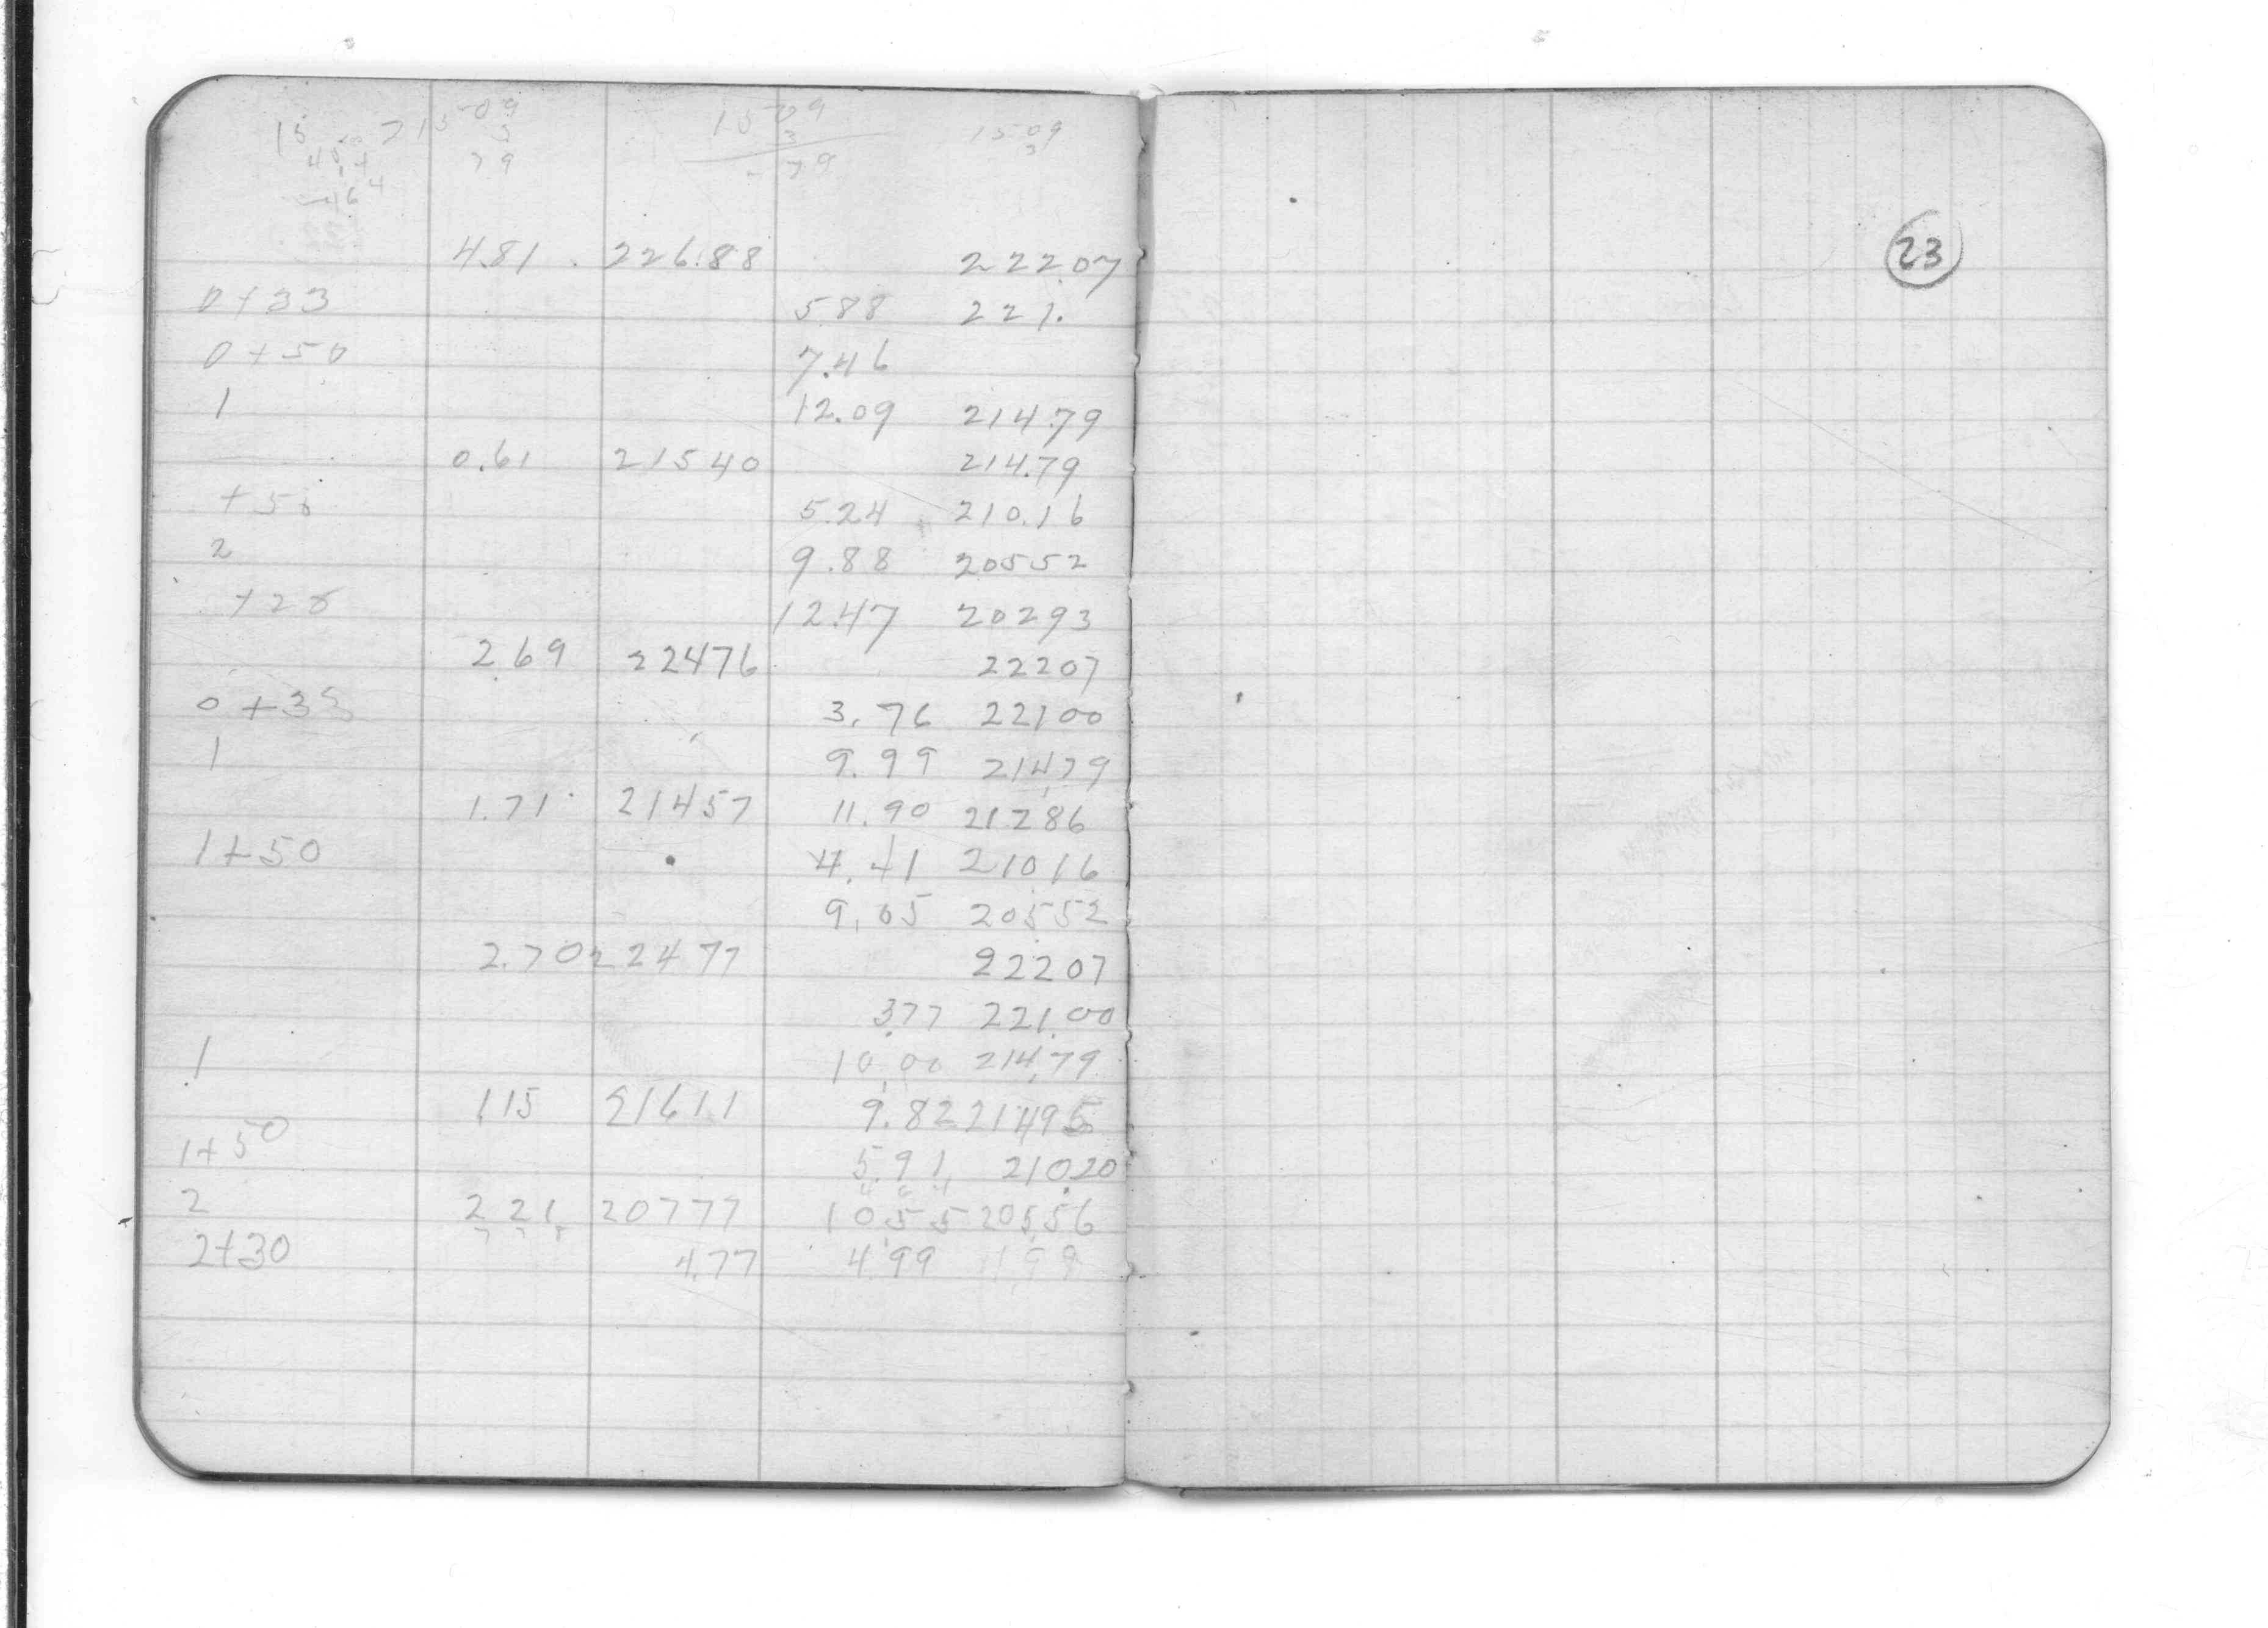 15 09 15 09 15 09
3 3
79 79
4.81 226.88 222.07
0+33 5.88 221.
0+50 7.46
1 12.09 214.79
0.61 21540 214.79
+50 5.24 210.16
2 9.88 20552
12.47 20293
2.69 22476 22207
0+33 3.76 22100
1 9.99 214.79
1.71 21457 11.90 21286
1+50 4.41 21016
9.05 20552
2.70 22477 22207
3.77 221.00
1 10.00 214.79
115 21611 9.82 21495
1+50 5.91 210.20
2 2 21 20777 10.55 205.56
2+30 4.77 4.99
23